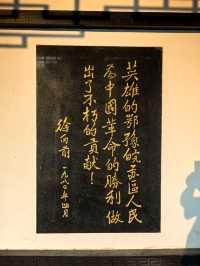 英雄的鄂豫皖苏区人民
为中国革命的胜利做
出了不朽的贡献！
徐向前 一九八〇年四月